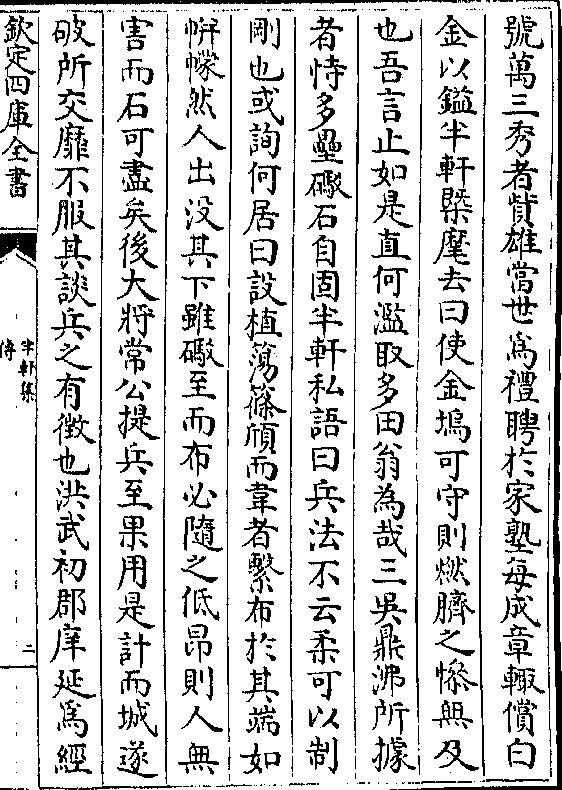 號萬三秀者貲雄當世爲禮聘於家塾每成章輙償白
金以鎰半軒槩麾去曰使金塢可守則燃臍之慘無及
也吾言止如是直何濫取多田翁為哉三吳鼎沸所據
者恃多壘礮石自固半軒私語曰兵法不云柔可以制
剛也或詢何居曰設植蕩篠頎而韋者繫布於其端如
帡幪然人出没其下雖礮至而布必隨之低昂則人無
害而石可盡矣後大將常公提兵至果用是計而城遂
破所交靡不服其談兵之有徴也洪武初郡庠延爲經
欽定四庫全書
半軒集
傳
二